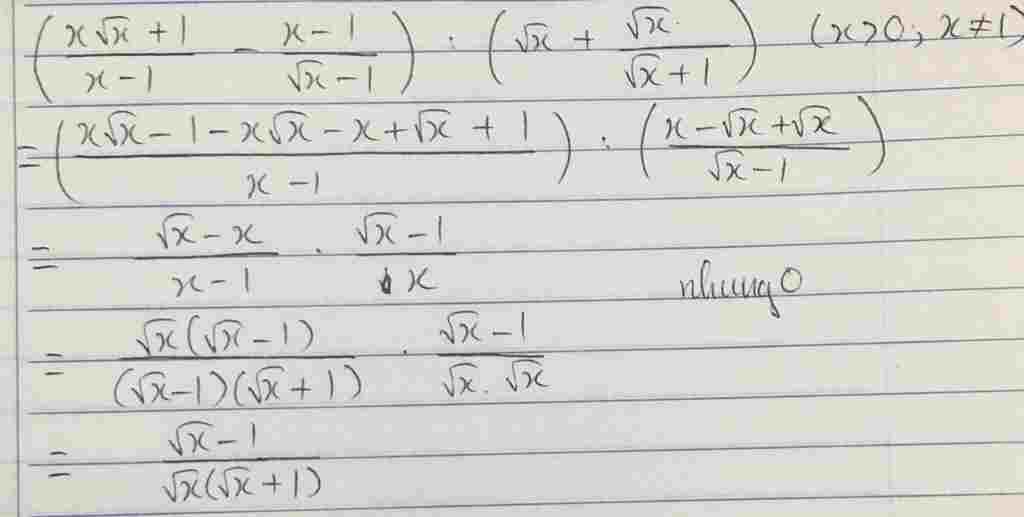 (x√x + 1 / x - 1 - x - 1 / √x - 1) : (√x + √x / √x + 1) (x > 0; x ≠ 1)
= (x√x - 1 - x√x - x + √x + 1 / x - 1) : (x - √x + √x / √x - 1)
= √x - x / x - 1 . √x - 1 / x
nhưng 0
= √x(√x - 1) / (√x - 1)(√x + 1) . √x - 1 / √x . √x
= √x - 1 / √x(√x + 1)